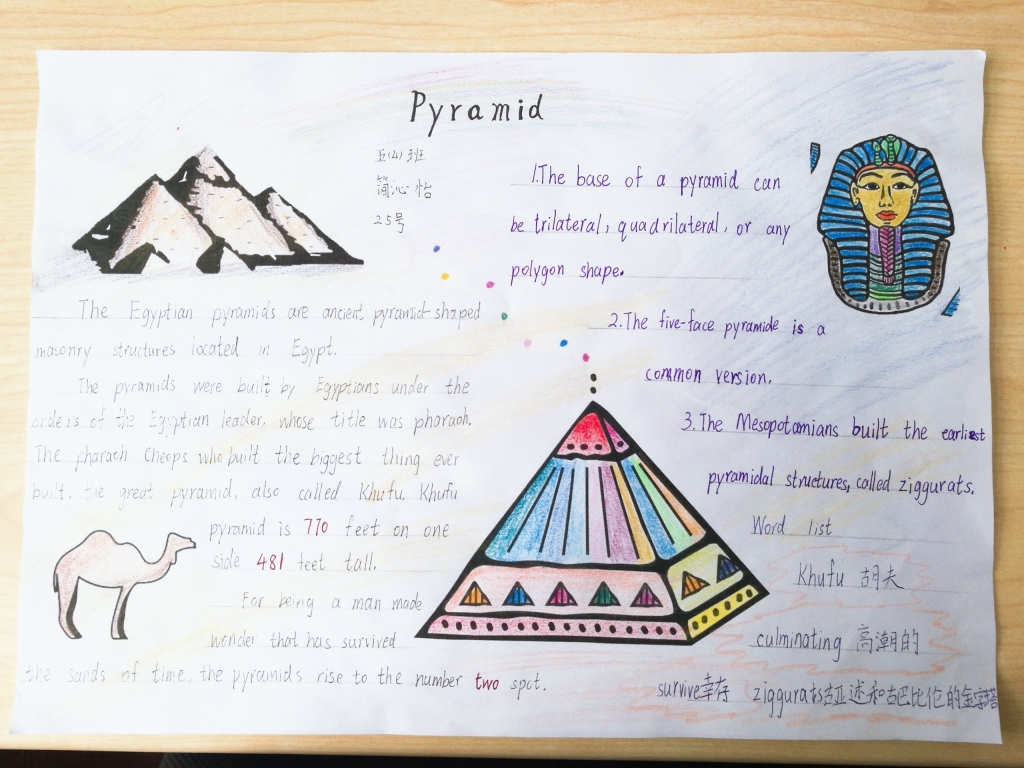 Pyramid
五(4)班
简沁怡
25号
1.The base of a pyramid can
be trilateral, quadrilateral, or any
polygon shape.
2.The five-face pyramide is a
common version.
3.The Mesopotamians built the earliest
pyramidal structures, called ziggurats.
The Egyptian pyramids are ancient pyramid-shaped
masonry structures located in Egypt.
The pyramids were built by Egyptians under the
orders of the Egyptian leader, whose title was pharaoh.
The pharaoh Cheops who built the biggest thing ever
built, the great pyramid, also called Khufu. Khufu
pyramid is 770 feet on one
side 481 feet tall.
For being a man made
wonder that has survived
the sands of time, the pyramids rise to the number two spot.
Word list
Khufu 胡夫
culminating 高潮的
survive幸存 ziggurats古亚述和古巴比伦的金字塔